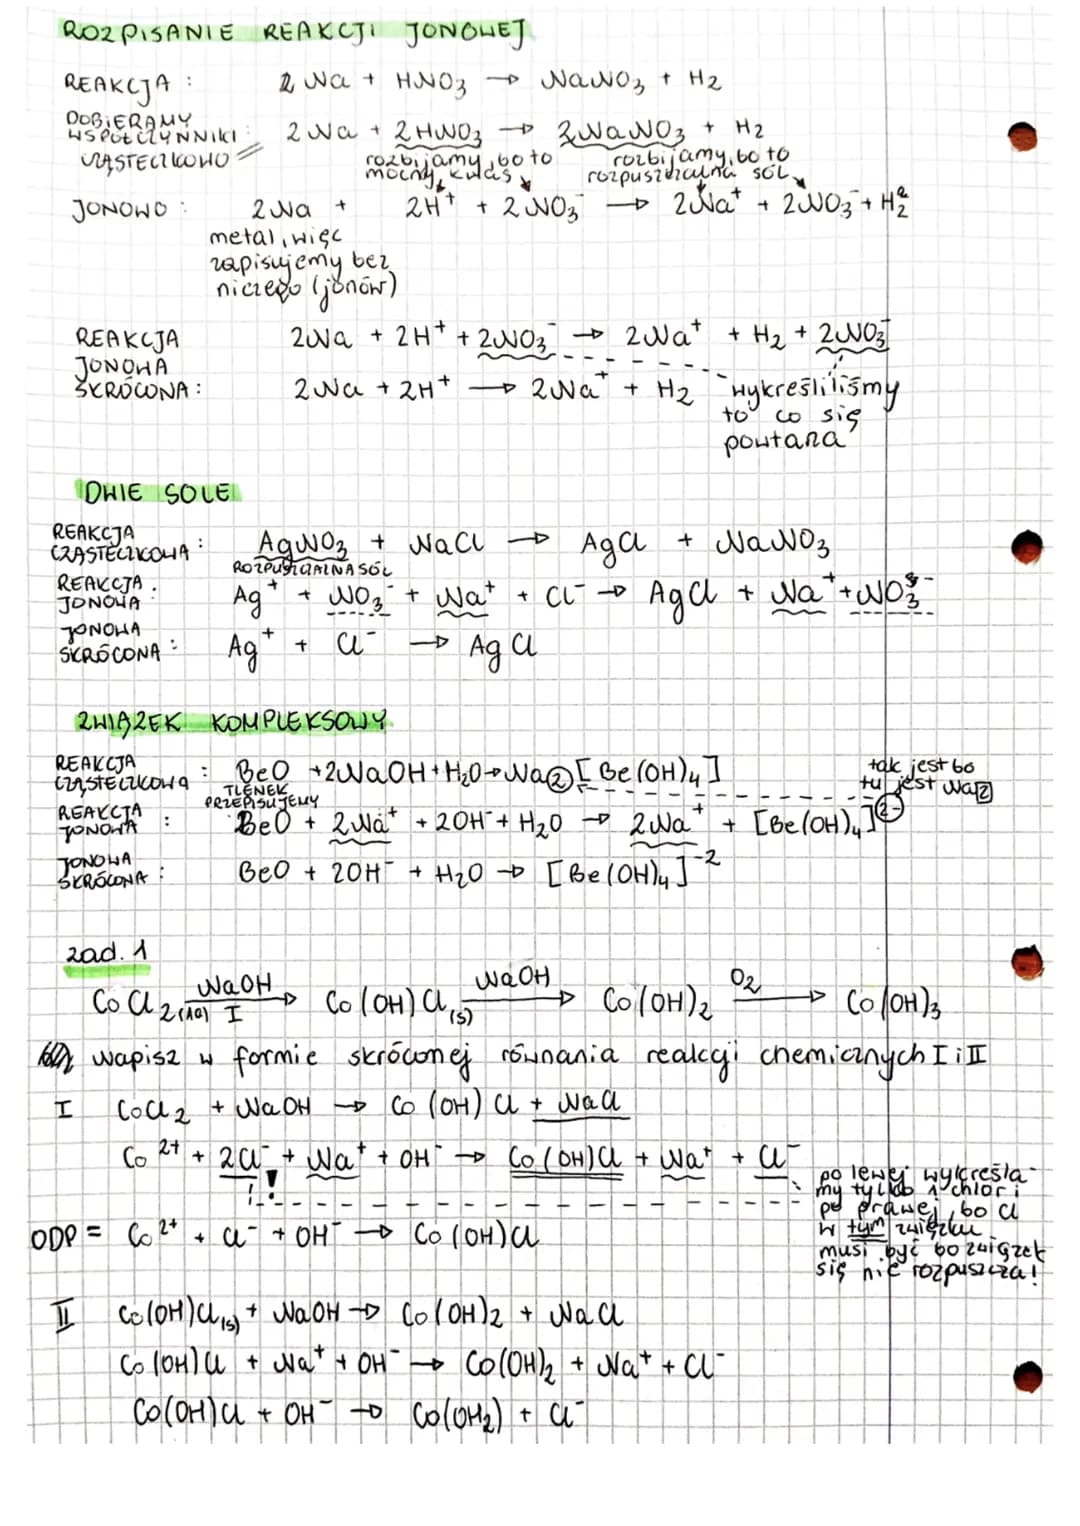 ROZPISANIE REAKCJI JONOWEJ
REAKCJA : 2 Na + HNO3 → NaNO3 + H2
DOBIERAMY WSPÓŁCZYNNIKI CZĄSTECZKOWO 2Na + 2HNO3 → 2NaNO3 + H2
rozbijamy, bo to mocny kwas
rozbijamy, bo to rozpuszczalna sól
JONOWO : 2Na + 2H⁺ + 2NO3⁻ → 2Na⁺ + 2NO3⁻ + H2
metal, więc
zapisujemy bez
niczego (jonów)
REAKCJA JONOWA SKRÓCONA :
2Na + 2H⁺ + 2NO3⁻ → 2Na⁺ + H2 + 2NO3⁻
2Na + 2H⁺ → 2Na⁺ + H2
wykreśliliśmy
to co się
powtarza
DWIE SOLE
REAKCJA CZĄSTECZKOWA : AgNO3 + NaCl → AgCl + NaNO3
ROZPUSZCZALNA SÓL
REAKCJA JONOWA : Ag⁺ + NO3⁻ + Na⁺ + Cl⁻ → AgCl + Na⁺ + NO3⁻
JONOWA SKRÓCONA : Ag⁺ + Cl⁻ → AgCl
ZWIĄZEK KOMPLEKSOWY
REAKCJA CZĄSTECZKOWA : BeO + 2NaOH + H2O → Na2[Be(OH)4]
TLENEK PRZEPISUJEMY
tak jest bo
tu jest Na2
REAKCJA JONOWA : BeO + 2Na⁺ + 2OH⁻ + H2O → 2Na⁺ + [Be(OH)4]²⁻
JONOWA SKRÓCONA : BeO + 2OH⁻ + H2O → [Be(OH)4]⁻²
zad. 1
CoCl2(AQ) —NaOH I→ Co(OH)Cl(s) —NaOH→ Co(OH)2 —O2→ Co(OH)3
Napisz w formie skróconej równania reakcji chemicznych I i II
I CoCl2 + NaOH → Co(OH)Cl + NaCl
Co²⁺ + 2Cl⁻ + Na⁺ + OH⁻ → Co(OH)Cl + Na⁺ + Cl⁻
!
po lewej wykreśla-
my tylko 1 chlor i
po prawej, bo Cl
w tym związku
musi być bo związek
się nie rozpuszcza!
ODP = Co²⁺ + Cl⁻ + OH⁻ → Co(OH)Cl
II Co(OH)Cl(s) + NaOH → Co(OH)2 + NaCl
Co(OH)Cl + Na⁺ + OH⁻ → Co(OH)2 + Na⁺ + Cl⁻
Co(OH)Cl + OH⁻ → Co(OH2) + Cl⁻